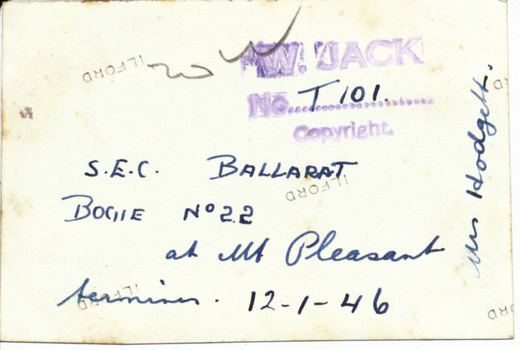 W. JACK
No. T 101.
Copyright.
S.E.C. BALLARAT
BOGIE Nº 22
at Mt Pleasant
terminus. 12-1-46
Mrs Hodgett.
ILFORD
ILFORD
ILFORD
ILFORD